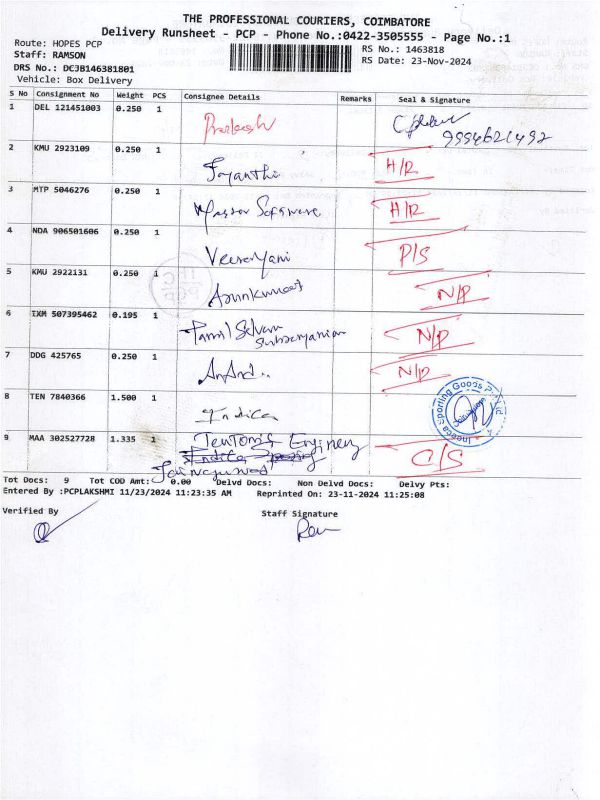 THE PROFESSIONAL COURIERS, COIMBATORE
Delivery Runsheet - PCP - Phone No.:0422-3505555 - Page No.:1
Route: HOPES PCP
RS No.: 1463818
Staff: RAMSON
RS Date: 23-Nov-2024
DRS No.: DCJB146381801
Vehicle: Box Delivery
S No Consignment No Weight PCS Consignee Details Remarks Seal & Signature
1 DEL 121451003 0.250 1 Prakash
2 KMU 2923109 0.250 1 Jayanthi H/R
3 MTP 5046276 0.250 1 Software H/R
4 NDA 906501606 0.250 1 P/S
5 KMU 2922131 0.250 1 N/P
6 IXM 507395462 0.195 1 Tamil Selvan N/P
7 DDG 425765 0.250 1 Anand.. N/P
8 TEN 7840366 1.500 1 Indica
9 MAA 302527728 1.335 1 C/S
Tot Docs: 9 Tot COD Amt: 0.00 Delvd Docs: Non Delvd Docs: Delvy Pts:
Entered By :PCPLAKSHMI 11/23/2024 11:23:35 AM Reprinted On: 23-11-2024 11:25:08
Verified By
Staff Signature